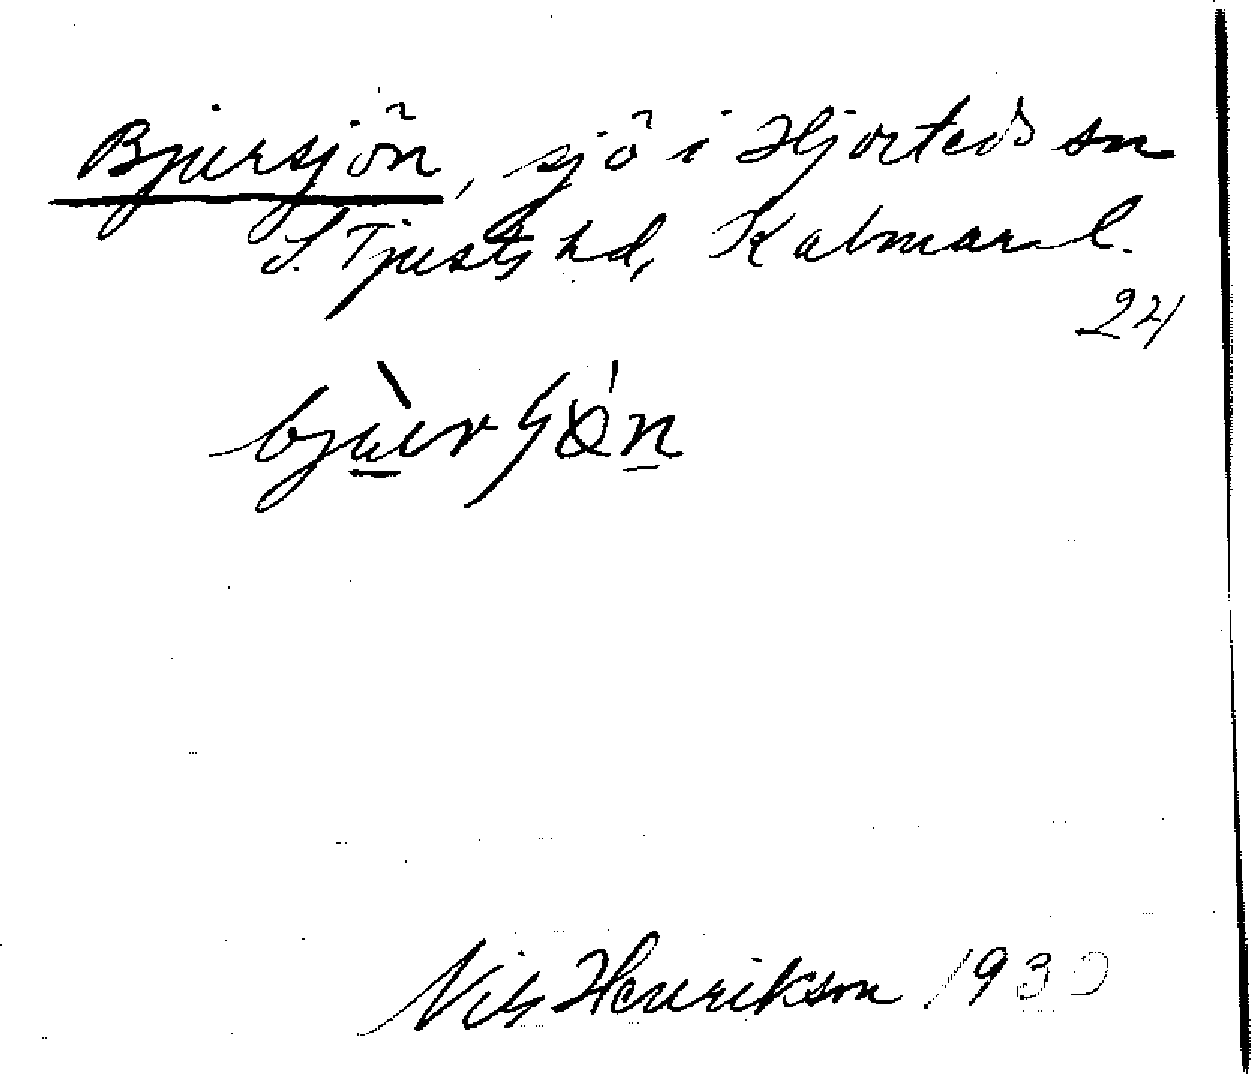 Bjursjön, sjö i Hjorteds sn
S. Tjusts hd, Kalmar l.
24
Nils Henrikson 1930